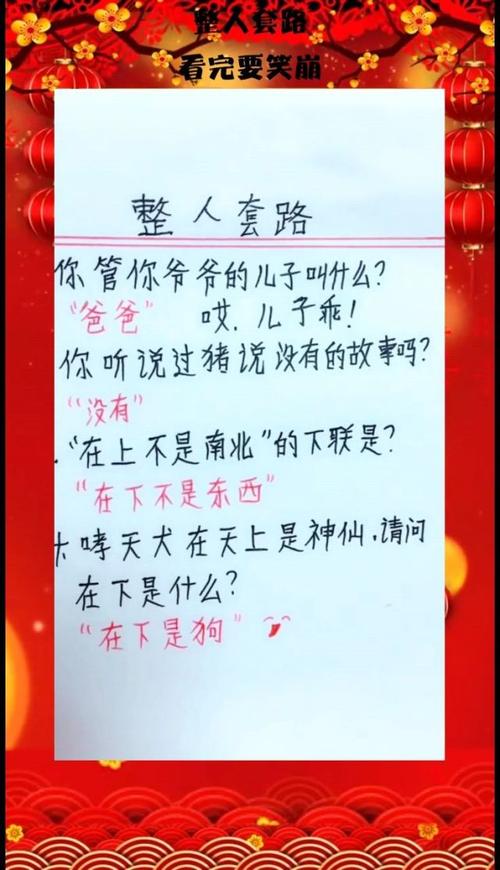 整人套路
看完要笑崩
整人套路
你管你爷爷的儿子叫什么?
"爸爸" 哎.儿子乖!
你听说过猪说没有的故事吗?
"没有"
."在上不是南北"的下联是?
"在下不是东西"
哮天犬在天上是神仙,请问
在下是什么?
"在下是狗"